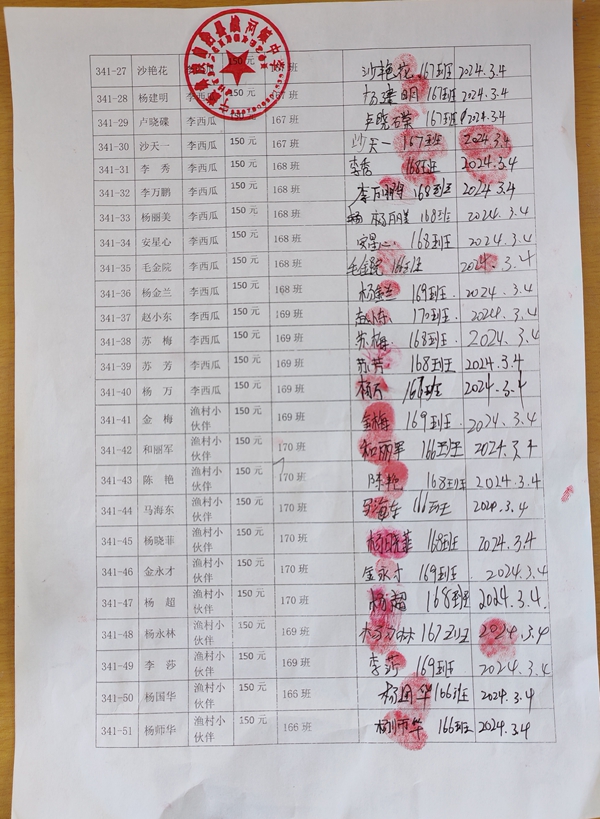 341-27 沙艳花 李西瓜 150元 167班 沙艳花 167班 2024.3.4
341-28 杨建明 李西瓜 167班 杨建明 167班 2024.3.4
341-29 卢晓碟 李西瓜 150元 167班 167班 2024.3.4
341-30 沙天一 李西瓜 150元 167班 沙天一 167班 2024.3.4
341-31 李 秀 李西瓜 150元 168班 李秀 168班 2024.3.4
341-32 李万鹏 李西瓜 150元 168班 李万鹏 168班 2024.3.4
341-33 杨丽美 李西瓜 150元 168班 杨 杨丽美 168班 2024.3.4
341-34 安星心 李西瓜 150元 168班 安星心 168班 2024.3.4
341-35 毛金院 李西瓜 150元 168班 毛金院 2024.3.4
341-36 杨金兰 李西瓜 150元 168班 杨金兰 169班. 2024.3.4
341-37 赵小东 李西瓜 150元 169班 赵小东 170班. 2024.3.4
341-38 苏 梅 李西瓜 150元 169班 苏梅 168班. 2024.3.4
341-39 苏 芳 李西瓜 150元 169班 苏芳 168班 2024.3.4
341-40 杨 万 李西瓜 150元 169班 杨万 2024.3.4
341-41 金 梅 渔村小伙伴 150元 169班 金梅 169班 2024.3.4
341-42 和丽军 渔村小伙伴 150元 170班 和丽军 166班 2024.3.4
341-43 陈 艳 渔村小伙伴 150元 170班 陈艳 168班 2024.3.4
341-44 马海东 渔村小伙伴 150元 170班 马海东 2024.3.4
341-45 杨晓菲 渔村小伙伴 150元 170班 杨晓菲 168班 2024.3.4
341-46 金永才 渔村小伙伴 150元 170班 金永才 169班 2024.3.4
341-47 杨 超 渔村小伙伴 150元 170班 杨超 168班 2024.3.4.
341-48 杨永林 渔村小伙伴 150元 169班 杨永林 167班 2024.3.4
341-49 李 莎 渔村小伙伴 150元 169班 李莎 169班 2024.3.4
341-50 杨国华 渔村小伙伴 150元 166班 杨国华 166班 2024.3.4
341-51 杨师华 渔村小伙伴 150元 166班 杨师华 166班 2024.3.4